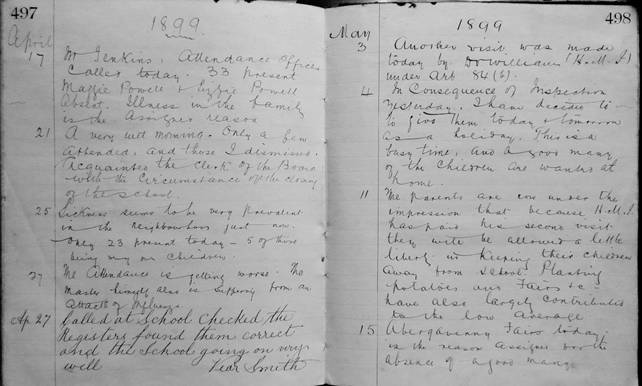 497
1899
April
17 Mr Jenkins, Attendance Officer
Called today. 33 present
Maggie Powell & Lizzie Powell
Absent. Illness in the family
is the Assigned reason
21 A very wet morning. Only a few
Attended, and those I dismissed.
Acquainted the Clerk of the Board
with the Circumstance of the closing
of the School.
25 Sickness seems to be very prevalent
in the neighbourhood just now.
Only 23 present today - 5 of these
being my own Children.
27 The Attendance is getting worse. The
Master himself also is suffering from an
Attack of Influenza
Ap. 27 Called at School checked the
Registers found them correct
and the School going on very
well Smith
498
1899
May
3 Another visit was made
today by Dr Williams (H.M.I)
under Art 84 (b).
4 In Consequence of Inspection
Yesterday, I have decided to
to give them today & tomorrow
as a holiday. This is a
busy time, and a good many
of the Children are wanted at
home.
11 The parents are now under the
impression that because H.M.I.
has paid his second visit
they will be allowed a little
liberty in keeping their children
away from school. Planting
potatoes and Fairs &c
have also largely contributed
to the low average
15 Abergavenny Fair today
is the reason Assigned for the
absence of a good many